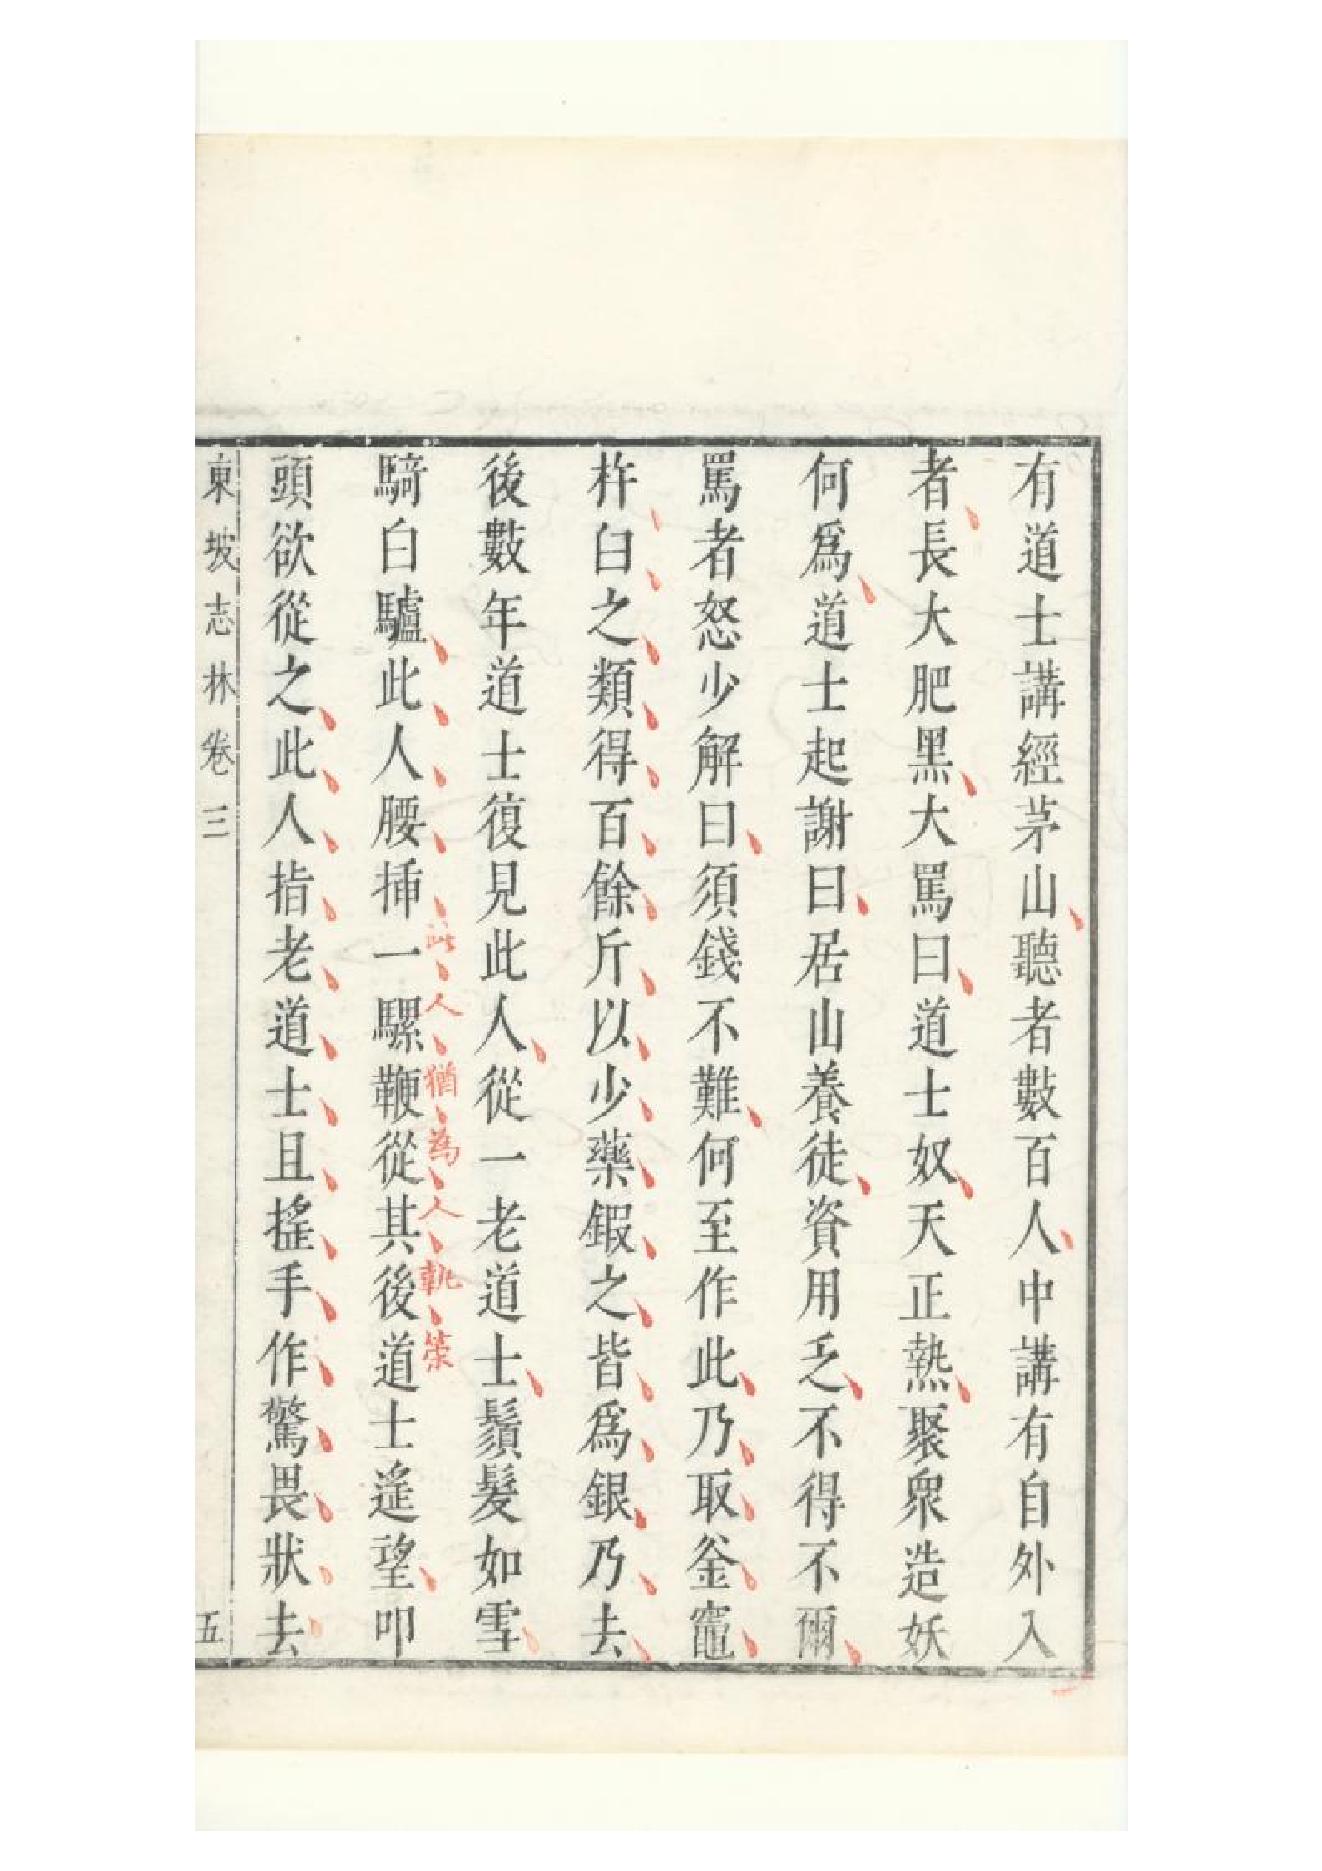 有道士講經茅山聽者數百人中講有自外入
者長大肥黑大罵曰道士奴天正熱聚衆造妖
何爲道士起謝曰居山養徒資用乏不得不爾
罵者怒少解曰須錢不難何至作此乃取釜竈
杵臼之類得百餘斤以少藥鍜之皆爲銀乃去
後數年道士復見此人從一老道士鬚髮如雪
騎白驢此人腰揷一騾鞭從其後道士遥望叩
此人猶為人執策
頭欲從之此人指老道士且搖手作驚畏狀去
東坡志林卷三
五